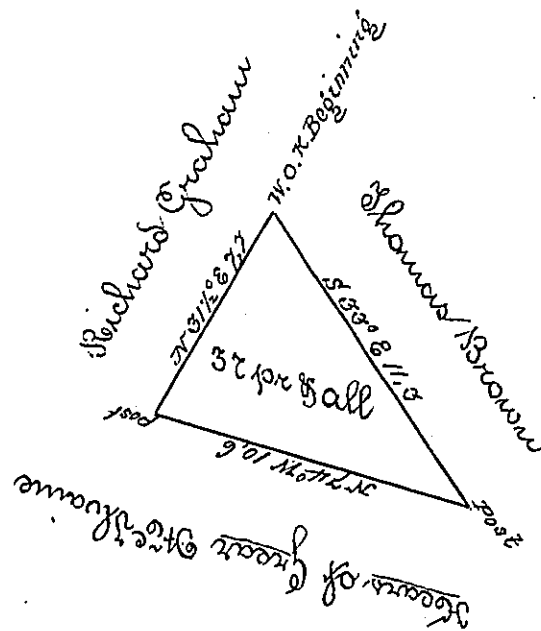 Richard Graham
W. O. K Beginning
Thomas Brown
N 31½° E 7,7
S 33° E 11,3
& all
post
N 74° W 10,6
post
Heairs of Grear McIlvaine